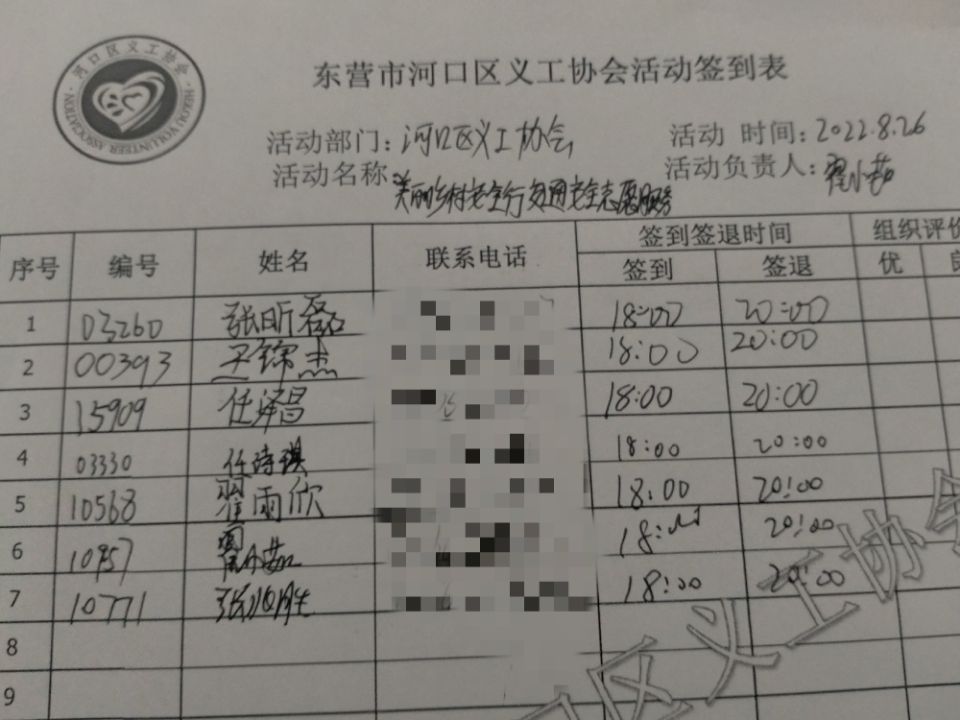 河口区义工协会
HEKOU VOLUNTEER ASSOCIATION
东营市河口区义工协会活动签到表
活动部门：河口区义工协会 活动 时间：2022.8.26
活动名称：美丽乡村安全行交通安全志愿服务 活动负责人：翟小茹
序号 编号 姓名 联系电话 签到签退时间 组织评价
签到 签退 优 良
1 03260 张昕磊 18:00 20:00
2 00393 王锦杰 18:00 20:00
3 15909 任泽昌 18:00 20:00
4 03330 任诗琪 18:00 20:00
5 10568 翟雨欣 18:00 20:00
6 10957 翟小茹 18:00 20:00
7 10771 张胜 18:00 20:00
8
9
区义工协会